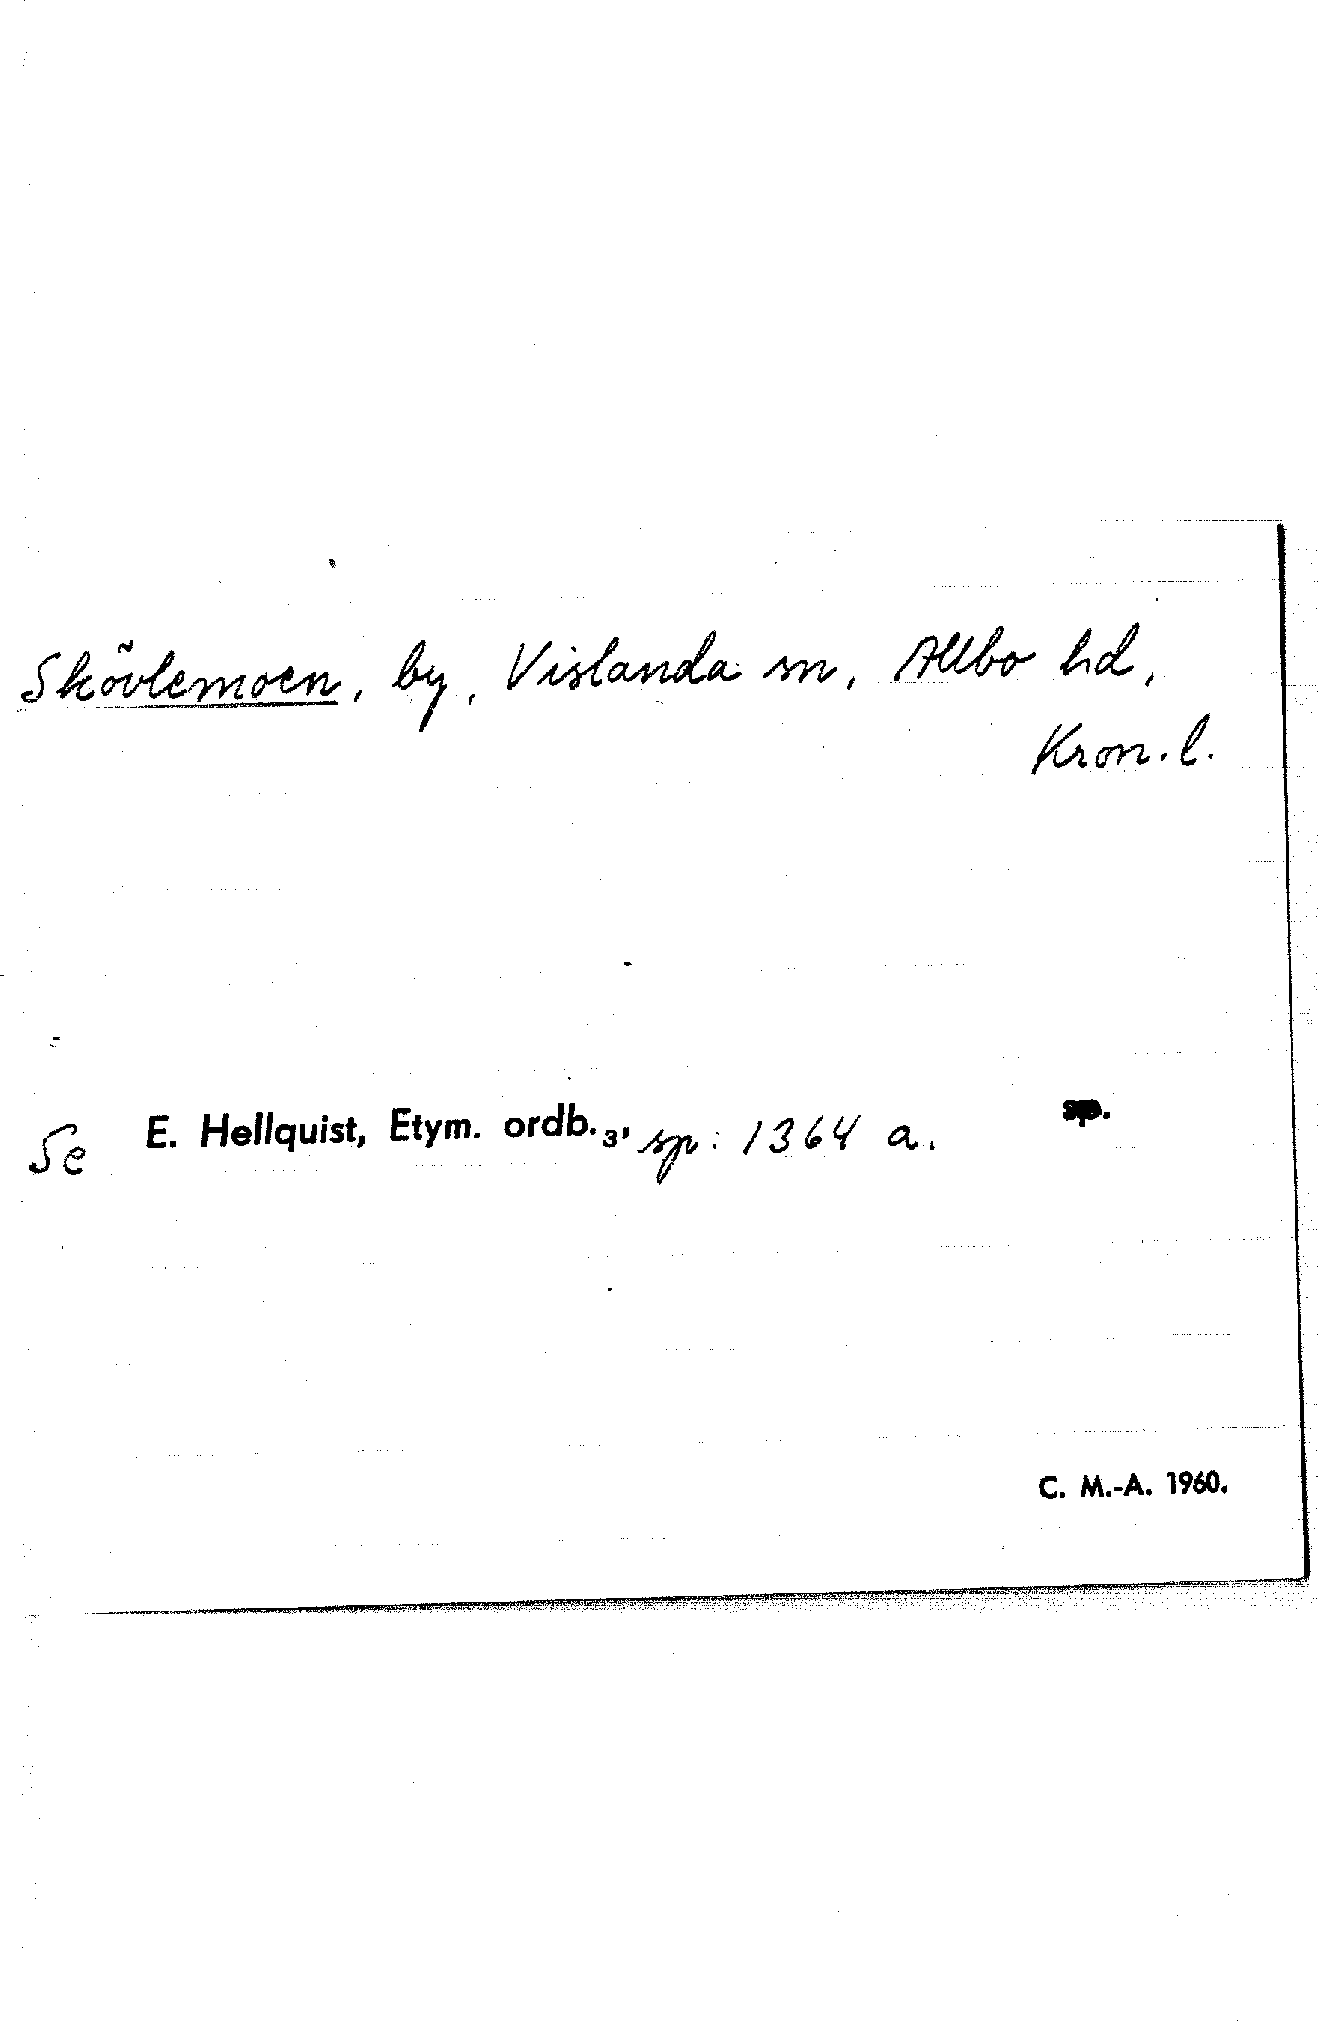 Skövlemoen, by, Vislanda sn, Allbo hd,
Kron. l.
Se E. Hellquist, Etym. ordb.₃, sp. 1364 a.
C. M.-A. 1960.